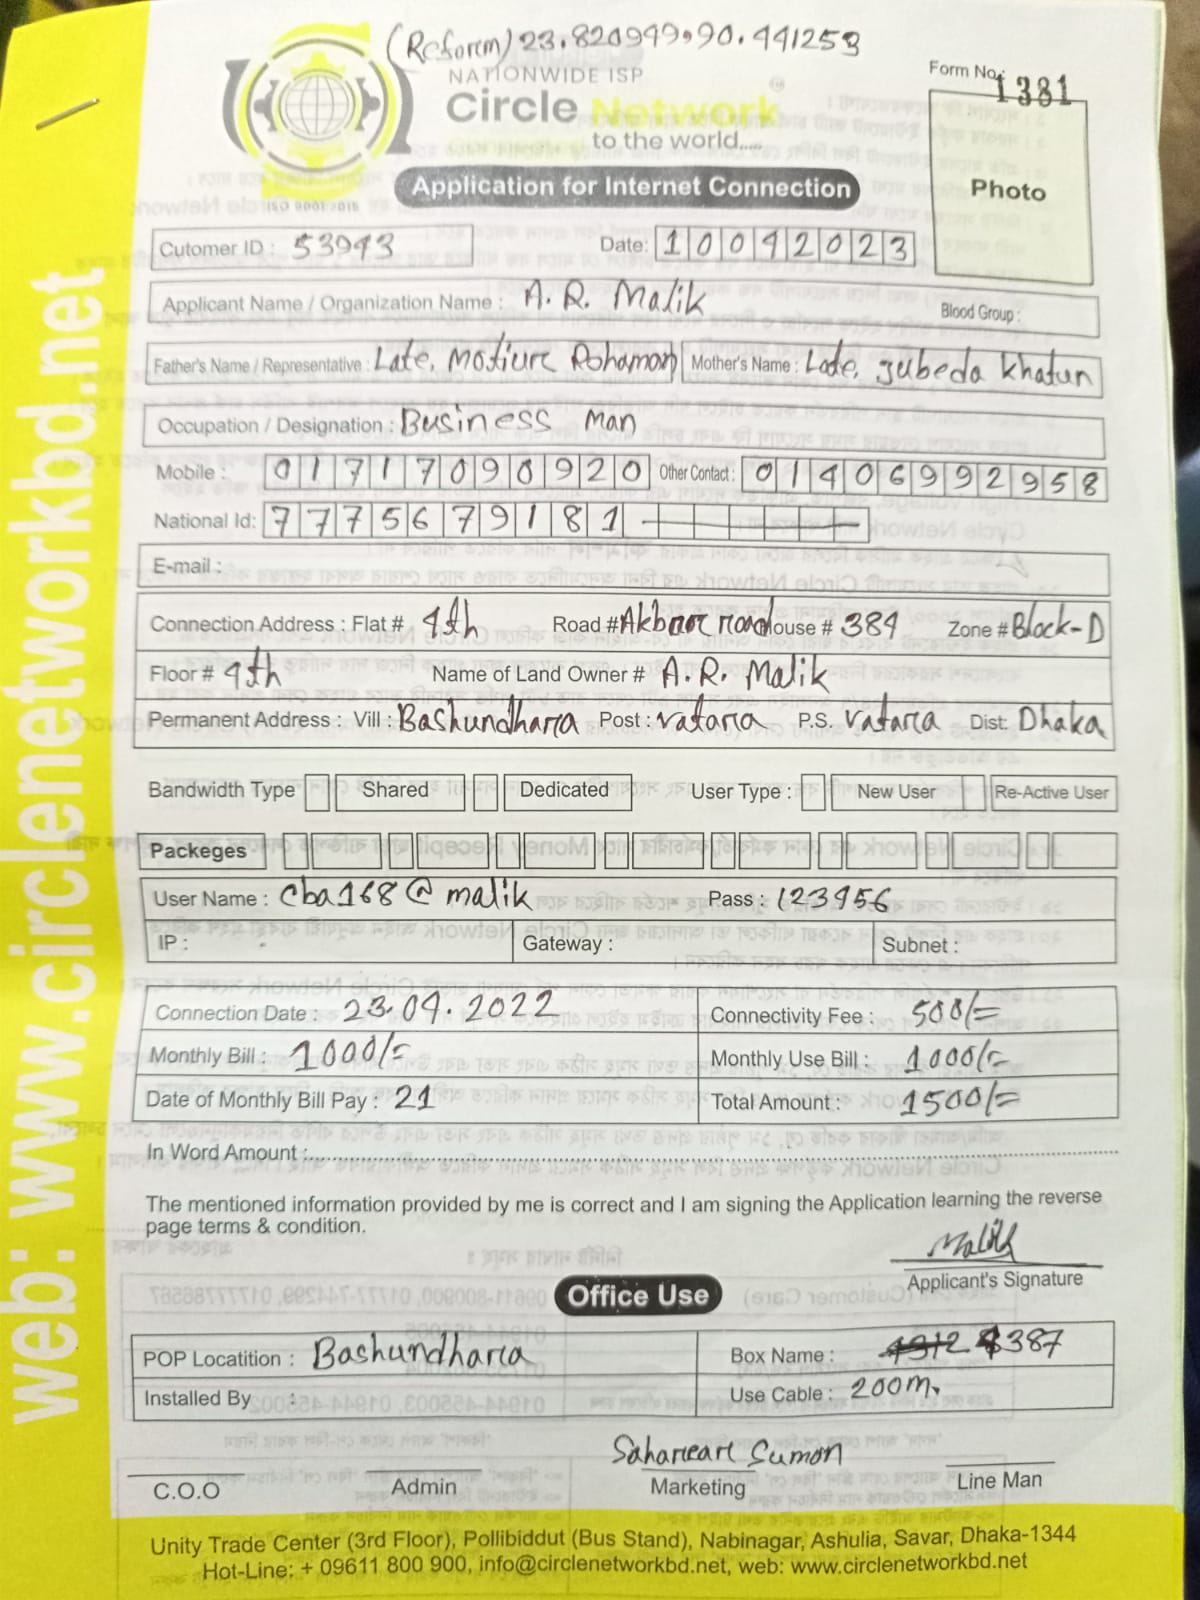 (Reform) 23.820949,90.441253
NATIONWIDE ISP
Circle Network
to the world.....
Form No: 1381
Photo
Application for Internet Connection
ISO 9001:2015
Cutomer ID : 53943
Date: 10042023
Applicant Name / Organization Name : A. R. Malik
Blood Group :
Father's Name / Representative : Late, Motiur Rohaman Mother's Name : Late, Jubeda Khatun
Occupation / Designation : Business Man
Mobile : 01717090920 Other Contact : 01406992958
National Id: 7775679181
E-mail :
Connection Address : Flat # 4th Road # Akbar road House # 384 Zone # Block-D
Floor # 4th Name of Land Owner # A. R. Malik
Permanent Address : Vill : Bashundhara Post : vatara P.S. vatara Dist: Dhaka
Bandwidth Type Shared Dedicated User Type : New User Re-Active User
Packeges
User Name : cba168@malik Pass : 123456
IP : Gateway : Subnet :
Connection Date : 23.04.2022 Connectivity Fee : 500/=
Monthly Bill : 1000/= Monthly Use Bill : 1000/=
Date of Monthly Bill Pay : 21 Total Amount : 1500/=
In Word Amount :
The mentioned information provided by me is correct and I am signing the Application learning the reverse
page terms & condition.
Malik
Applicant's Signature
Office Use
POP Locatition : Bashundhara Box Name : 387
Installed By : Use Cable : 200m.
Sahariar Sumon
C.O.O Admin Marketing Line Man
Unity Trade Center (3rd Floor), Pollibiddut (Bus Stand), Nabinagar, Ashulia, Savar, Dhaka-1344
Hot-Line: + 09611 800 900, info@circlenetworkbd.net, web: www.circlenetworkbd.net
web: www.circlenetworkbd.net